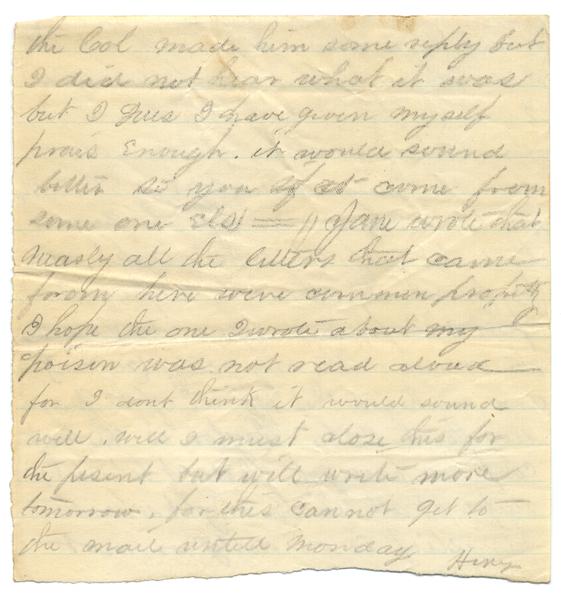 the Col made him some reply but
I did not hear what it was
but I Gues I have given myself
prais Enough. it would sound
better to you if it come from
some one els = // Jane wrote that
nearly all the letters that came
from here were common property
I hope the one I wrote about my
poison was not read aloud
for I dont think it would sound
well. will I must close this for
the present but will write more
tomorrow, for this cannot get to
the mail untill Monday